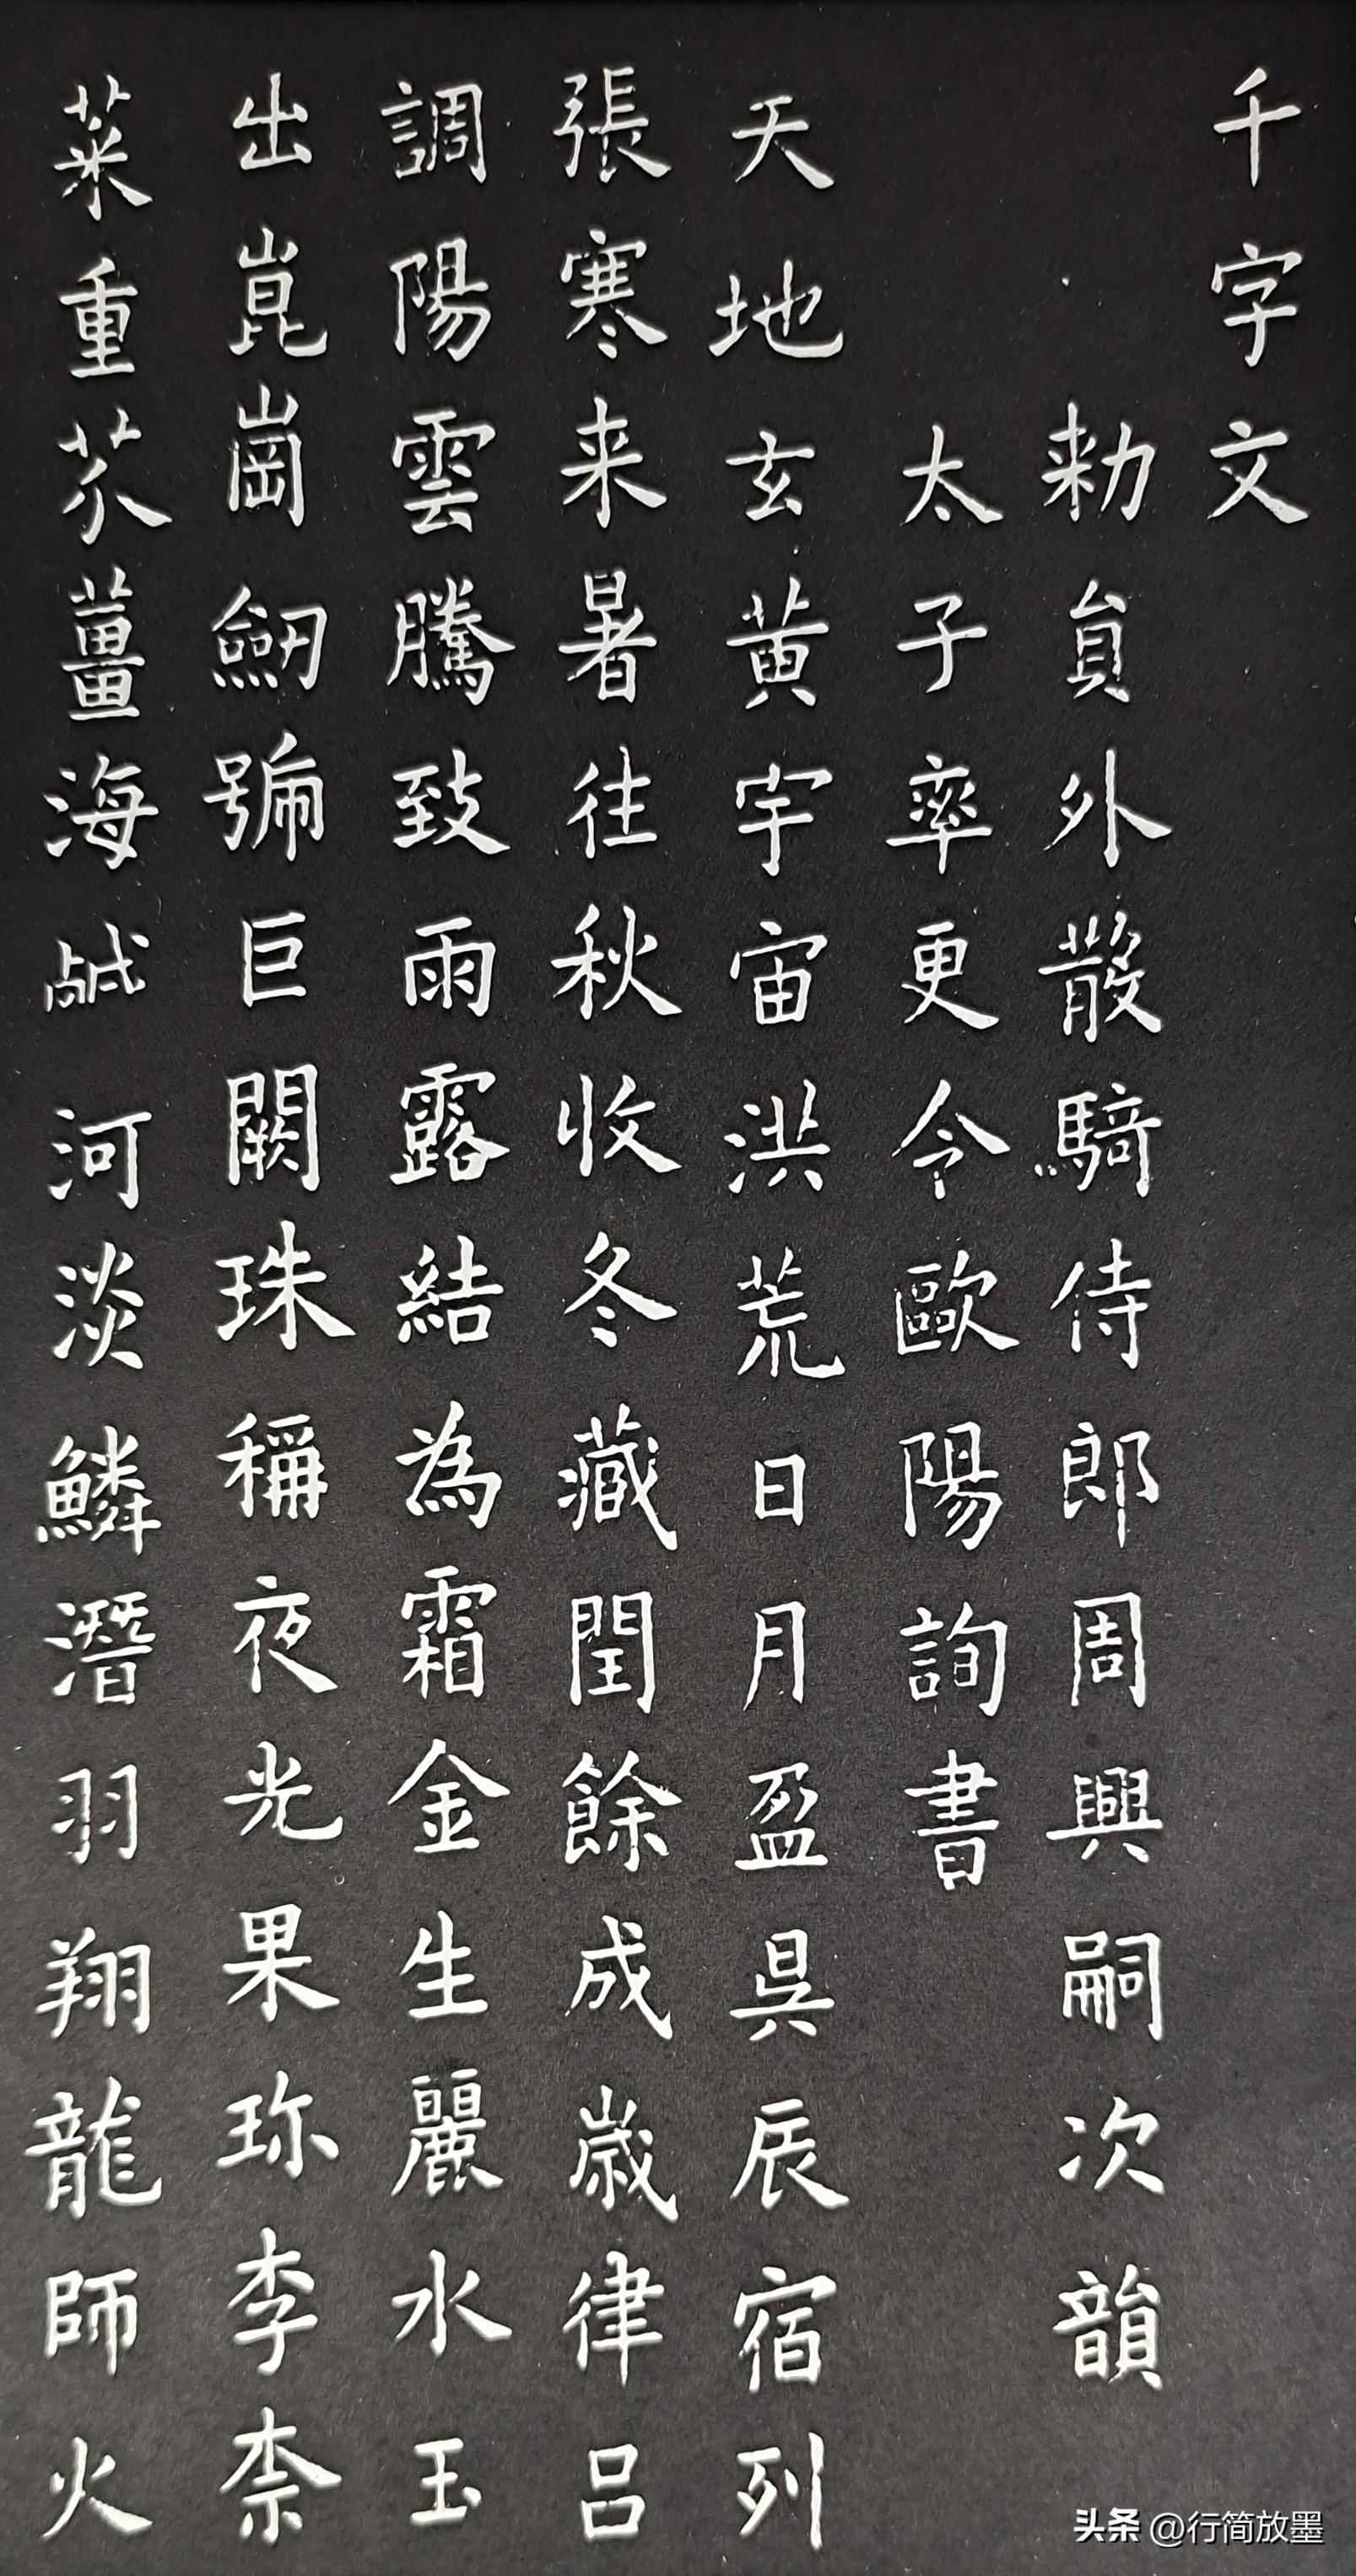 千字文
勑員外散騎侍郎周興嗣次韻
太子率更令歐陽詢書
天地玄黃宇宙洪荒日月盈昃辰宿列
張寒来暑往秋收冬藏閏餘成歲律呂
調陽雲騰致雨露結為霜金生麗水玉
出崑崗劒號巨闕珠稱夜光果珎李柰
菜重芥薑海鹹河淡鱗潛羽翔龍師火
头条 @行简放墨